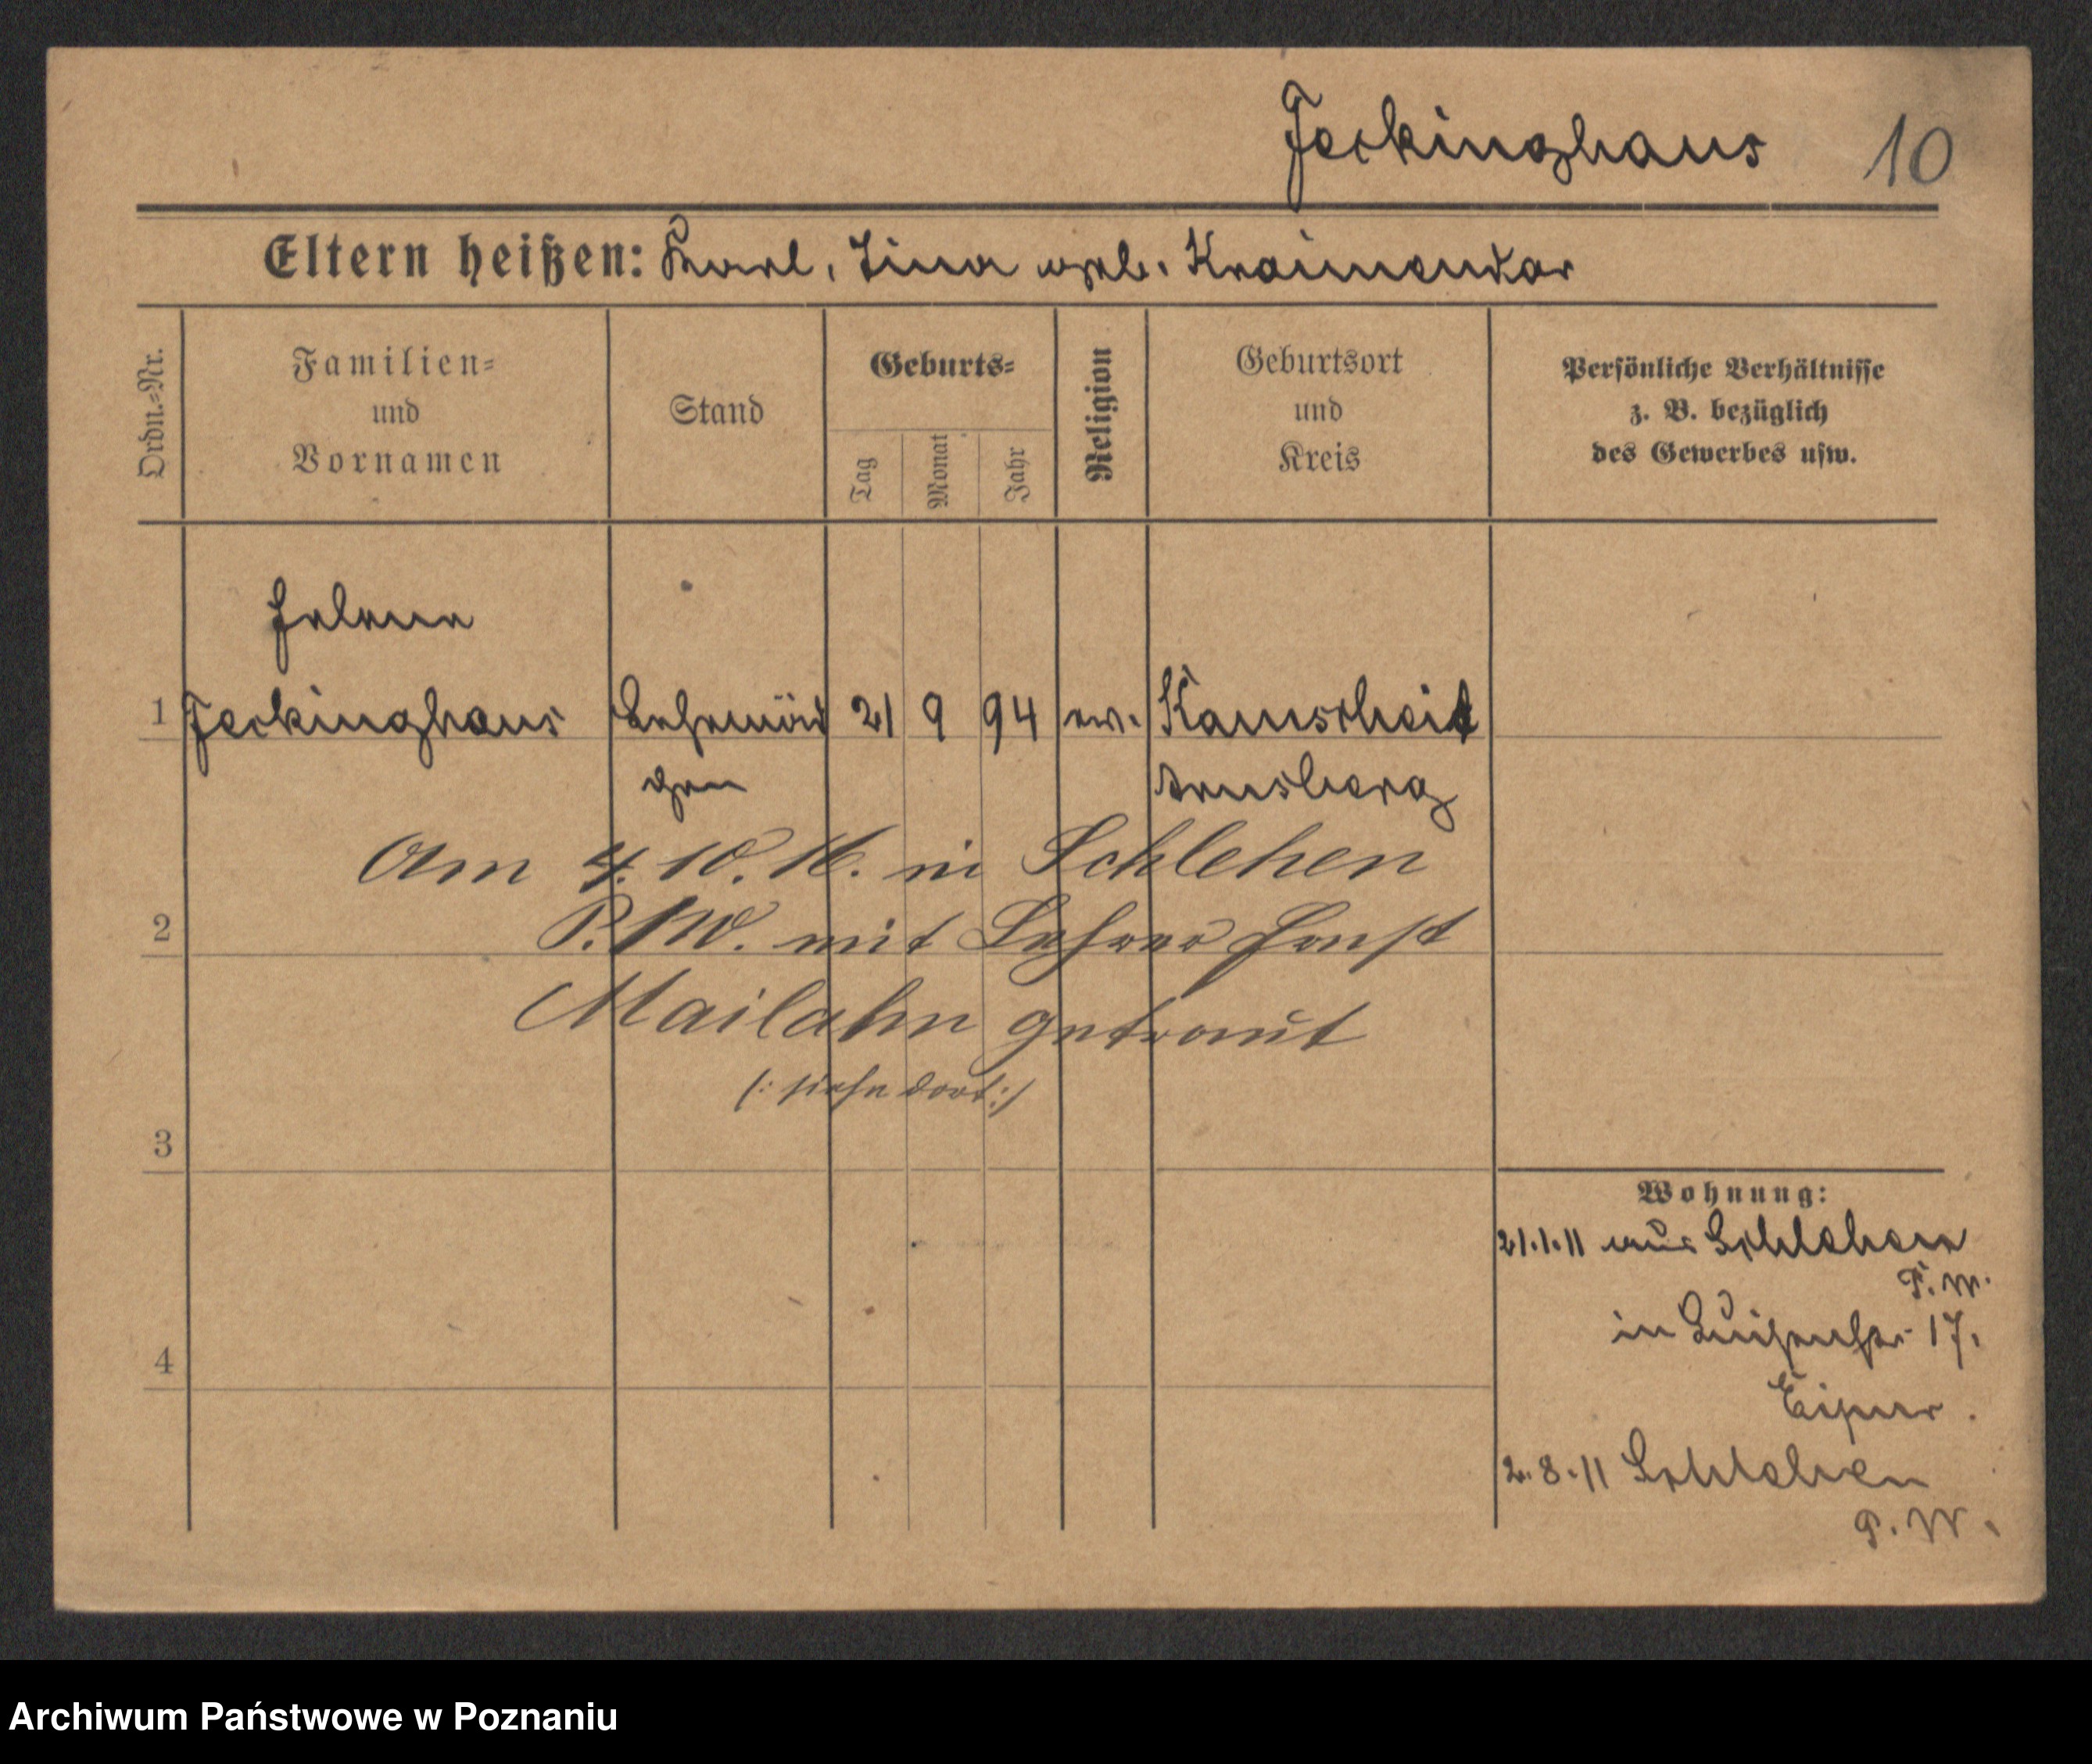 Jeckinghaus 10
Eltern heißen: Karl, Lina geb. Kraimendar
Ordn.-Nr.
Familien-
und
Vornamen
Stand
Geburts-
Tag
Monat
Jahr
Religion
Geburtsort
und
Kreis
Persönliche Verhältnisse
z. B. bezüglich
des Gewerbes usw.
Helene
1 Jeckinghaus Lehrmäd 21 9 94 ev. Kamscheid
chen Arnsberg
Am 4.10.16. in Schlehen
2 P.W. mit Lehrer Ernst
Mailahn getraut
(: siehe dort :)
3
Wohnung:
21.1.11 aus Schlehen
P. W.
in Luisenstr 17.
4
2.8.11 Schlehen
P. W.
Archiwum Państwowe w Poznaniu